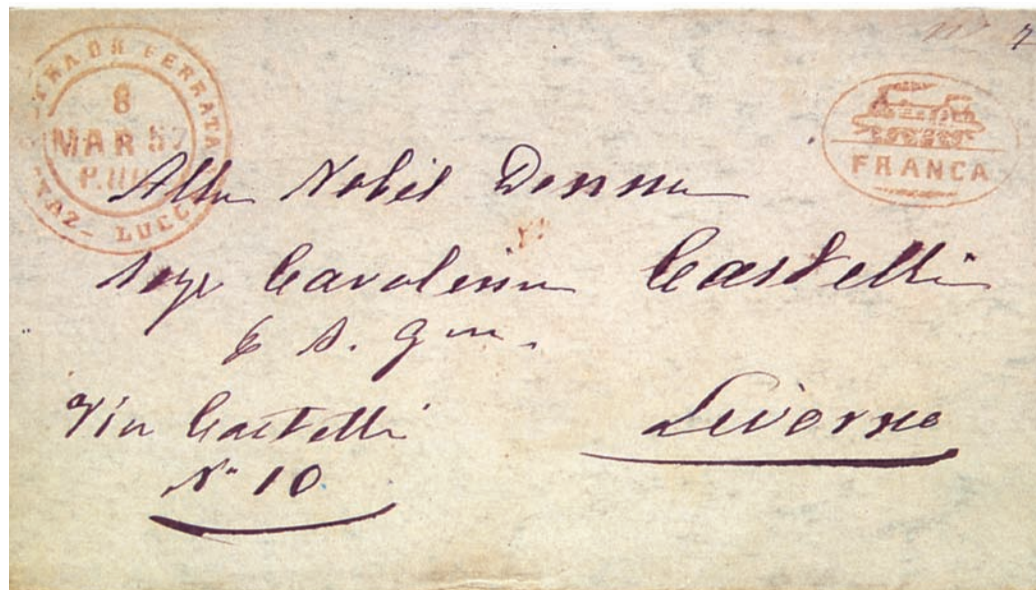 STRADA FERRATA
8
MAR 57
STAZ- LUCCA
FRANCA
Alla Nobil Donna
Sigr Carolina Castelli
S. G.m.
Via Castelli
Livorno
N° 10